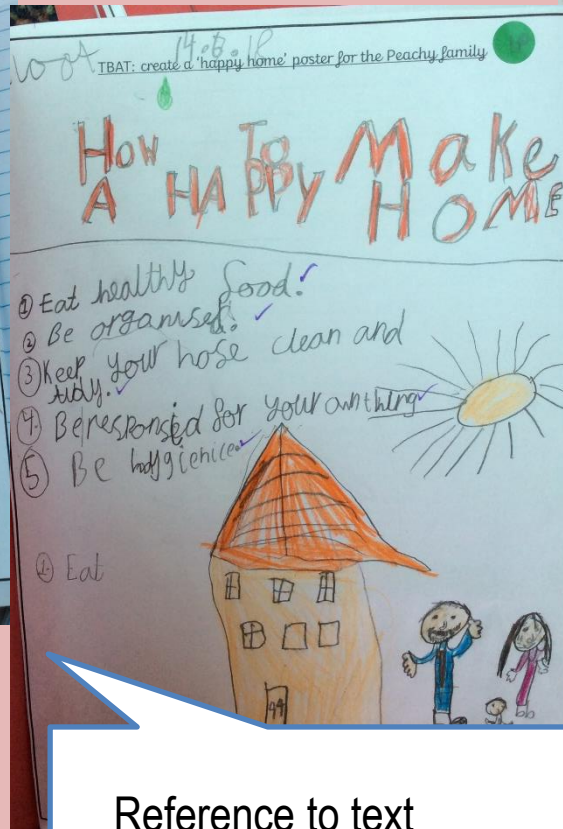 14.6.18
TBAT: create a 'happy home' poster for the Peachy family
How To Make
A HAPPY HOME
① Eat healthy food.
② Be organised.
③ Keep your hose clean and
tidy.
4. Be responsid for your own thing
⑤ Be hdygienice
① Eat
44
Reference to text